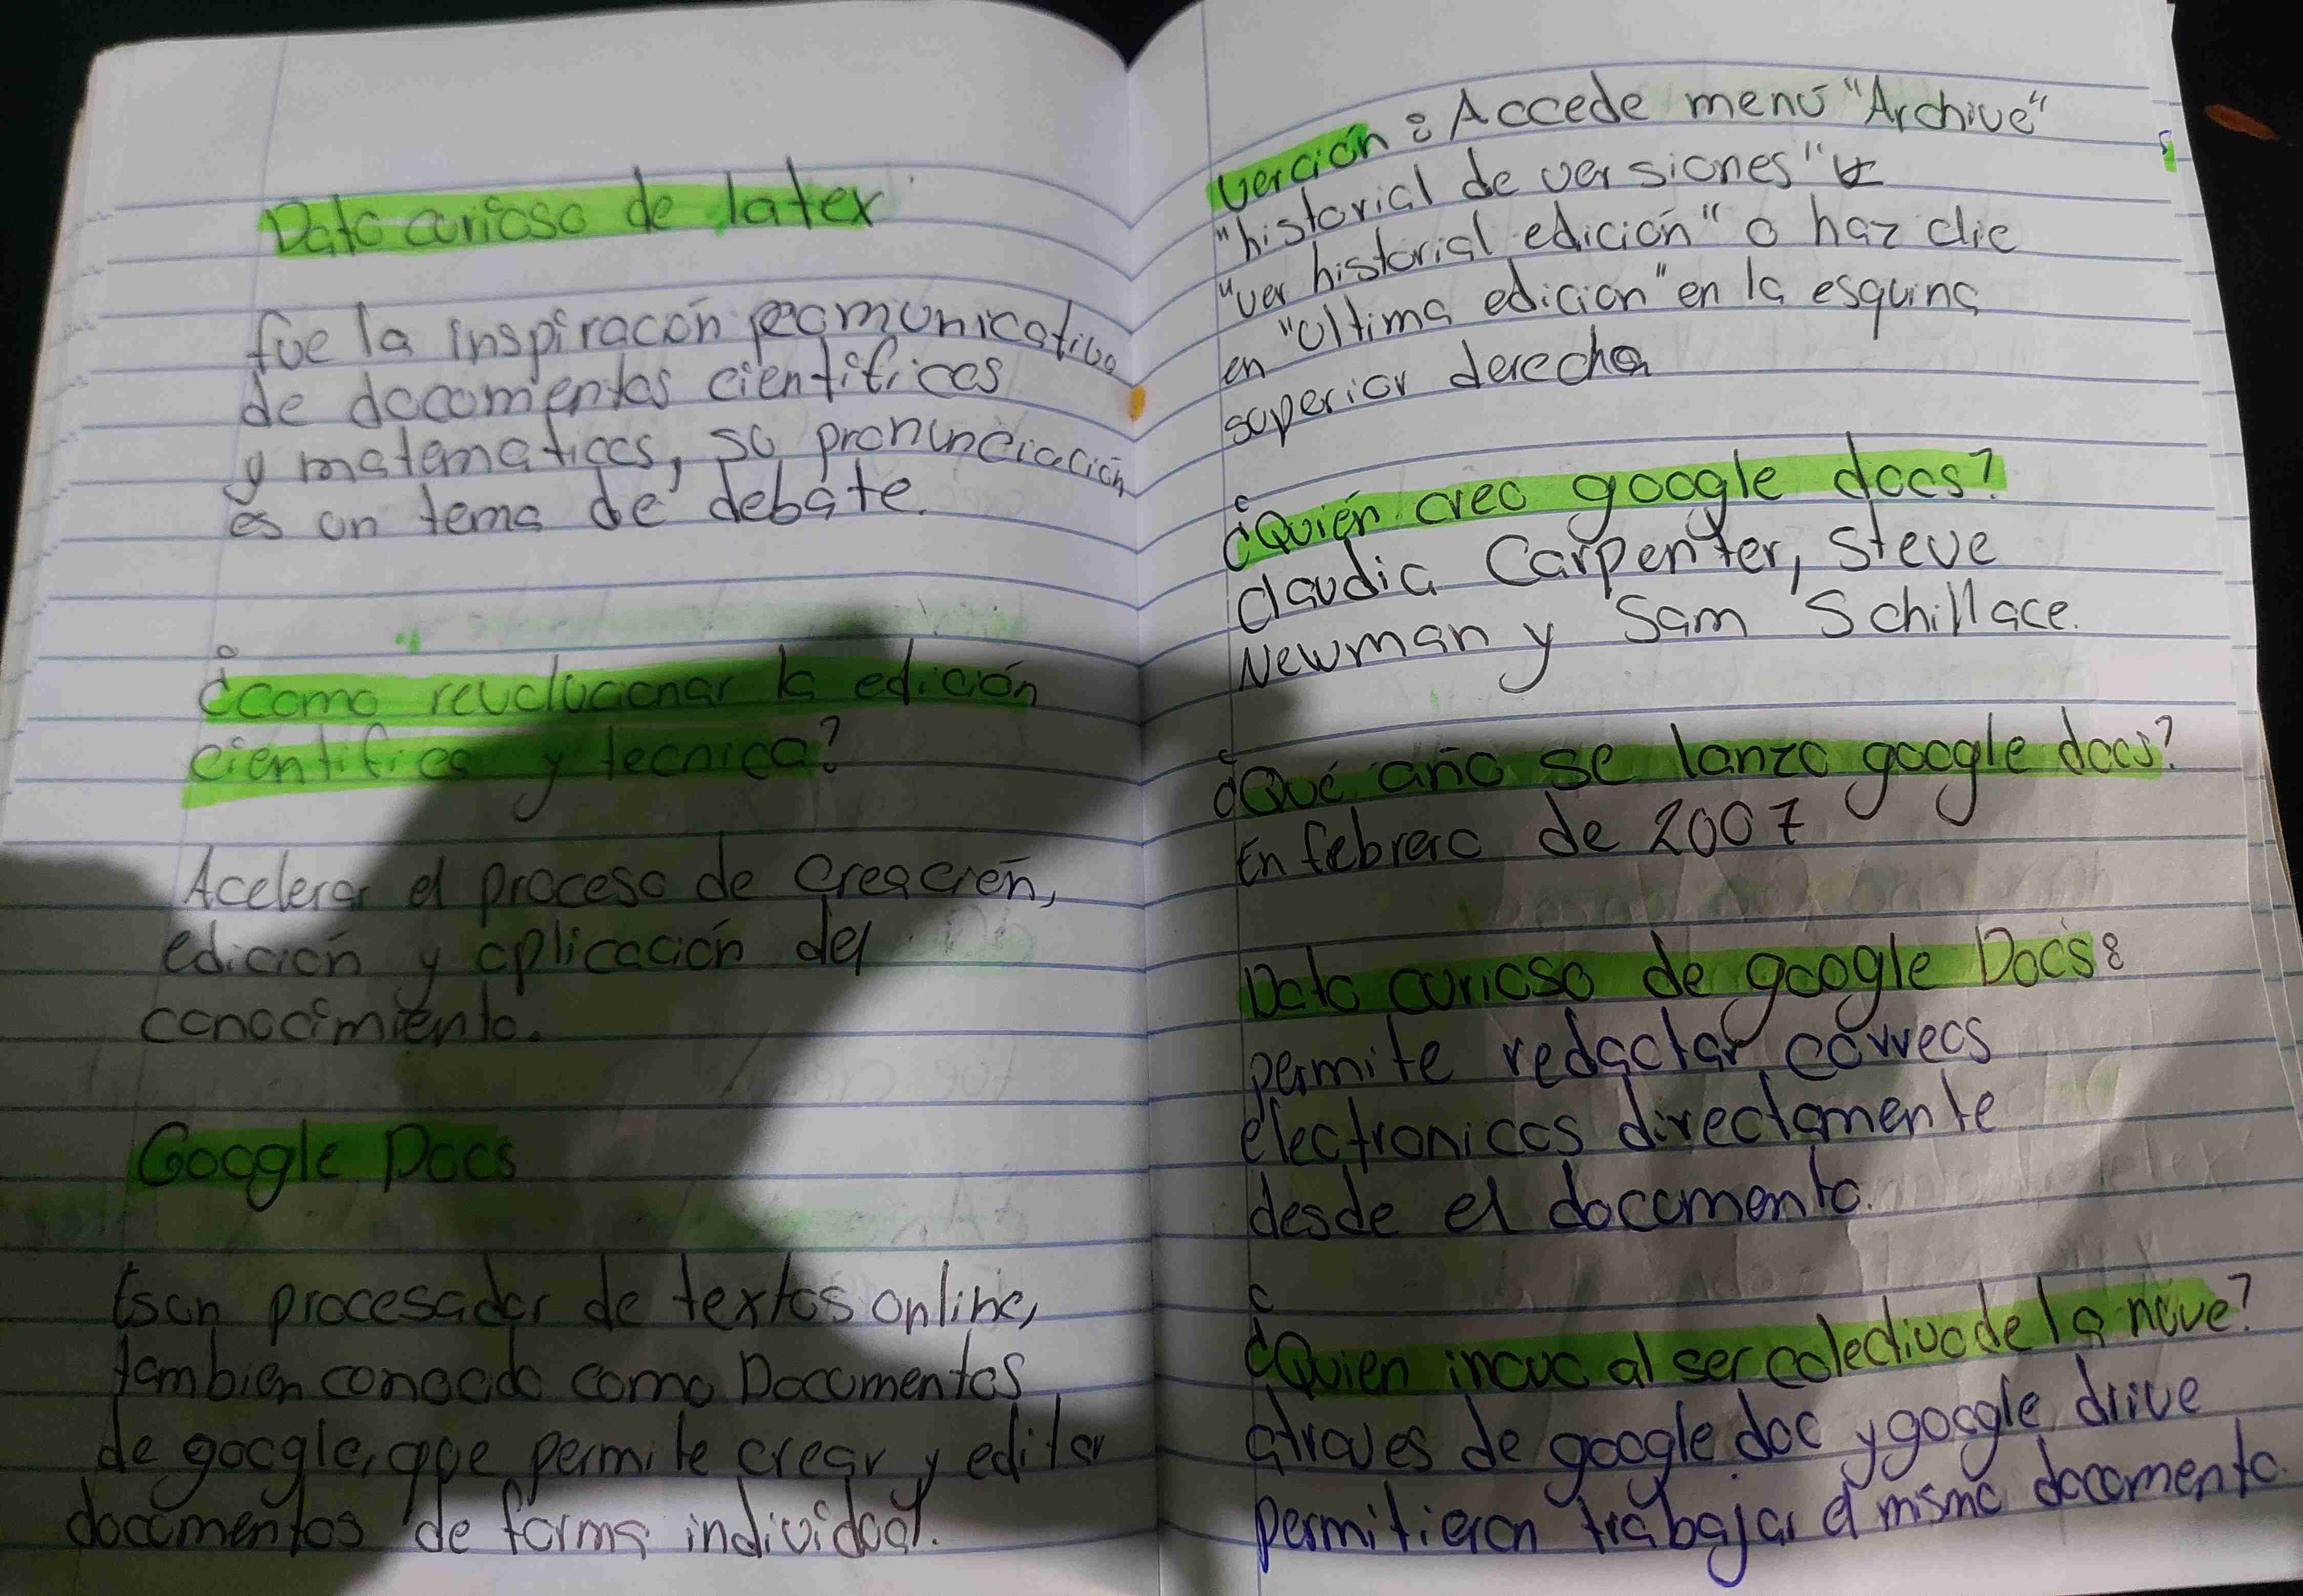 Dato curioso de latex
fue la inspiracón
de documentos cientificos
y matematicos, su pronunciación
es un tema de debate.
¿como revolucionar la edición
cientifica y tecnica?
Acelerar el proceso de creación,
edición y aplicación del
conocimiento.
Google Docs
Es un procesador de textos online,
tambien conocido como Documentos
de google, que permite crear y editar
documentos de forma individual.
Verción: Accede menú "Archivo"
"historial de versiones" y
"ver historial edición" o haz clic
en "Ultima edición" en la esquina
superior derecha
¿Quién creo google docs?
Claudia Carpenter, Steve
Newman y Sam Schillace.
¿Qué año se lanzo google docs?
En febrero de 2007
Dato curioso de google Docs:
permite redactar correos
electronicos directamente
desde el documento.
¿Quien al ser colectivo de la nuve?
atraves de google doc y google drive
permitieron trabajar el mismo documento.